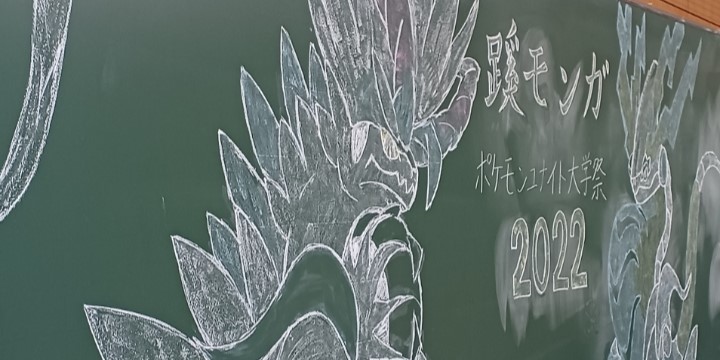 蹊モンガ
ポケモンユナイト大学祭
2022